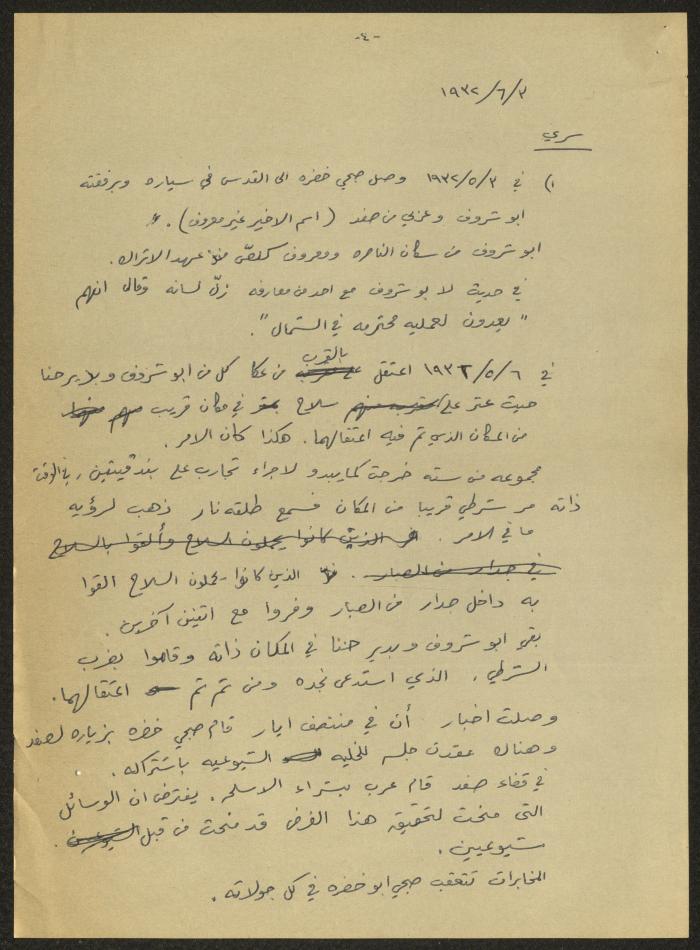 -٤-
١٩٣٢/٦/٣
سري
١) في ١٩٣٢/٥/٣ وصل صبحي خضره الى القدس في سياره وبرفقته
ابو شروف وعزبي من صفد (اسم الاخير غير معروف).
ابو شروف من سكان الناصره ومعروف كلصّ منذ عهد الاتراك.
في حديث لابو شروف مع احد من معارفه زلّ لسانه وقال انهم
"يعدون لعمليه محترمه في الشمال".
في ١٩٣٢/٥/٦ اعتقل بالقرب من عكا كل من ابو شروف و بدير حنا
حيث عثر على سلاح في مكان قريب
من المكان الذي تم فيه اعتقالهما. هكذا كان الامر.
مجموعه من سته خرجت كما يبدو لاجراء تجارب على بندقيتين، في الوقت
ذاته مر شرطي قريبا من المكان فسمع طلقه نار ذهب لرؤيه
ما في الامر. الذين كانوا يحملون السلاح وألقوا بالسلاح
في جدار من الصبار. الذين كانوا يحملون السلاح القوا
به داخل جدار من الصبار وفروا مع اثنين آخرين.
بقي ابو شروف وبدير حنا في المكان ذاته وقاموا بضرب
الشرطي، الذي استدعى نجده ومن ثم تم اعتقالهما.
وصلت اخبار أن في منتصف ايار قام صبحي خضره بزياره لصفد
وهناك عقدت جلسه للخليه الشيوعيه باشتراكه.
في قضاء صفد قام عرب بشراء الاسلحه. يفترض ان الوسائل
التي منحت لتحقيق هذا الغرض قد منحت من قبل
شيوعيين.
المخابرات تتعقب صبحي ابو خضره في كل جولاته.